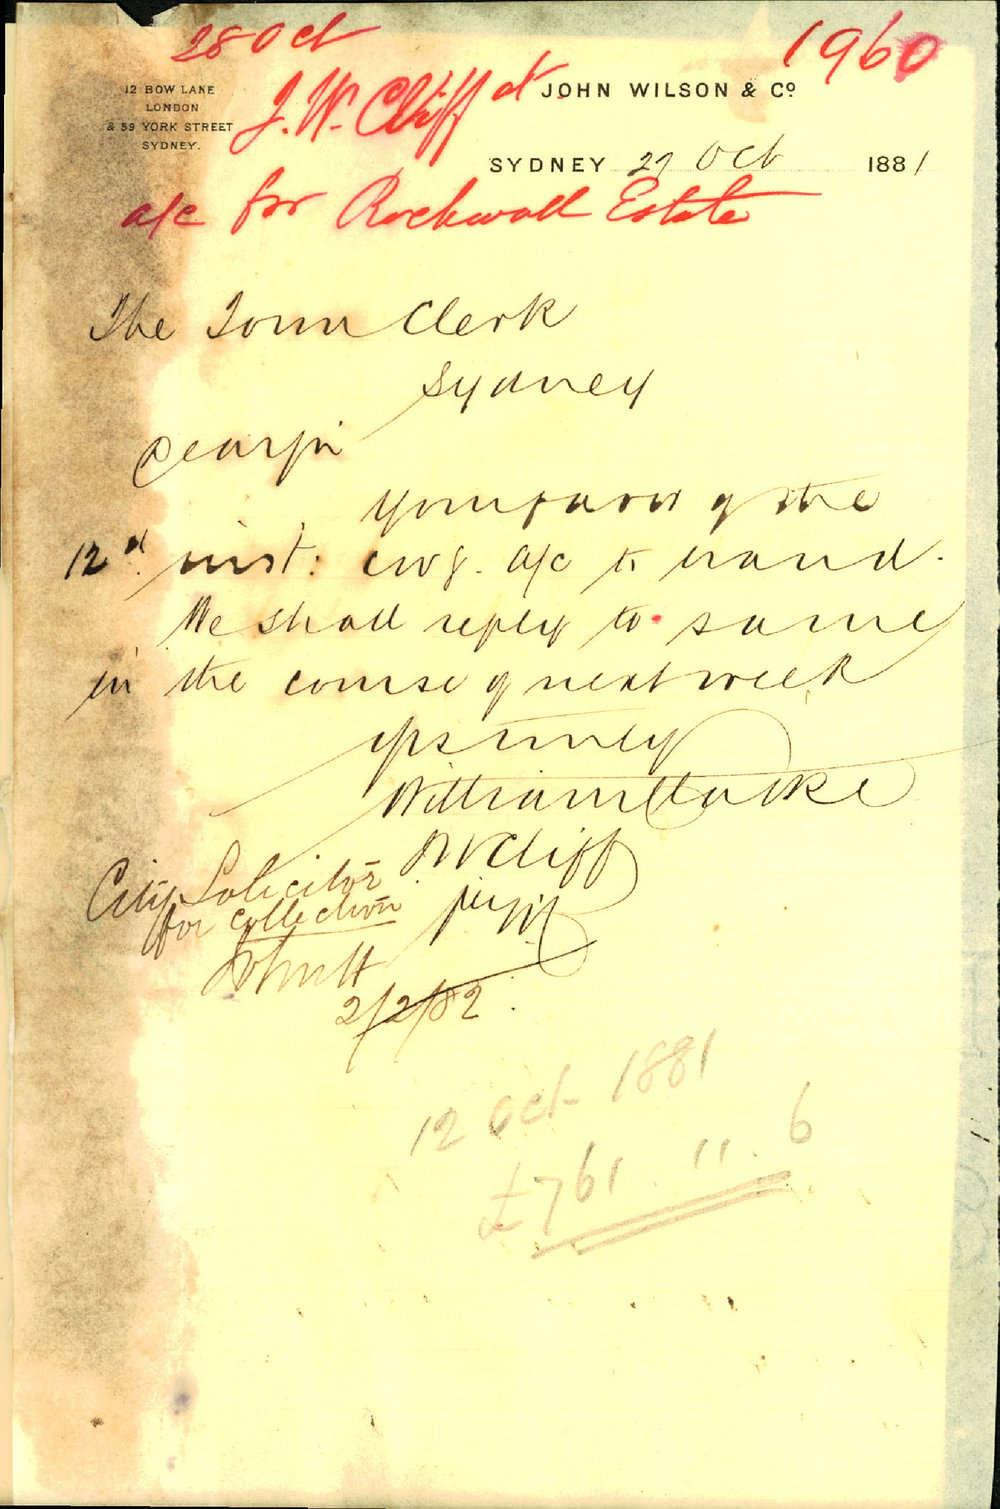 28 Oct
1960
12 BOW LANE
LONDON
& 59 YORK STREET
SYDNEY.
J. W. Cliff
JOHN WILSON & Co
SYDNEY 27 Oct 1881
a/c for Rockwall Estate
The Town Clerk
Sydney
Dear Sir
Your favor of the
12th inst: a/c to hand.
We shall reply to same
in the course of next week
Yrs truly
William
W Cliff
City Solicitor
for collection
2/2/82.
12 Oct 1881
£761. 11. 6